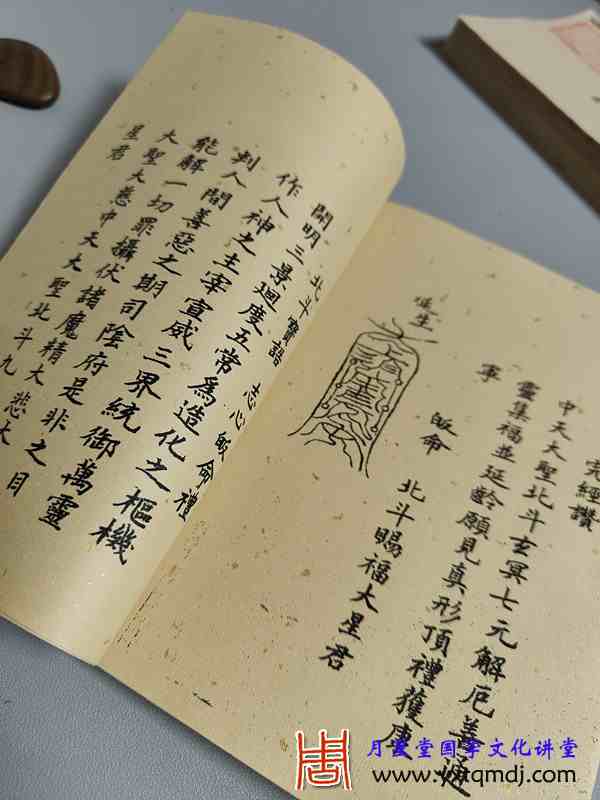 完經讚
中天大聖北斗玄冥七元解厄善通
靈集福並延齡願見真形頂禮獲康
寧
皈命 北斗賜福大星君
延生
北斗寶誥 志心皈命禮
開明三景迴度五常為造化之樞機
作人神之主宰宣威三界統御萬靈
判人間善惡之期司陰府是非之目
能解一切罪攝伏諸魔精大悲大
大聖大慈中天大聖北斗九
星君
堂国学文化讲堂